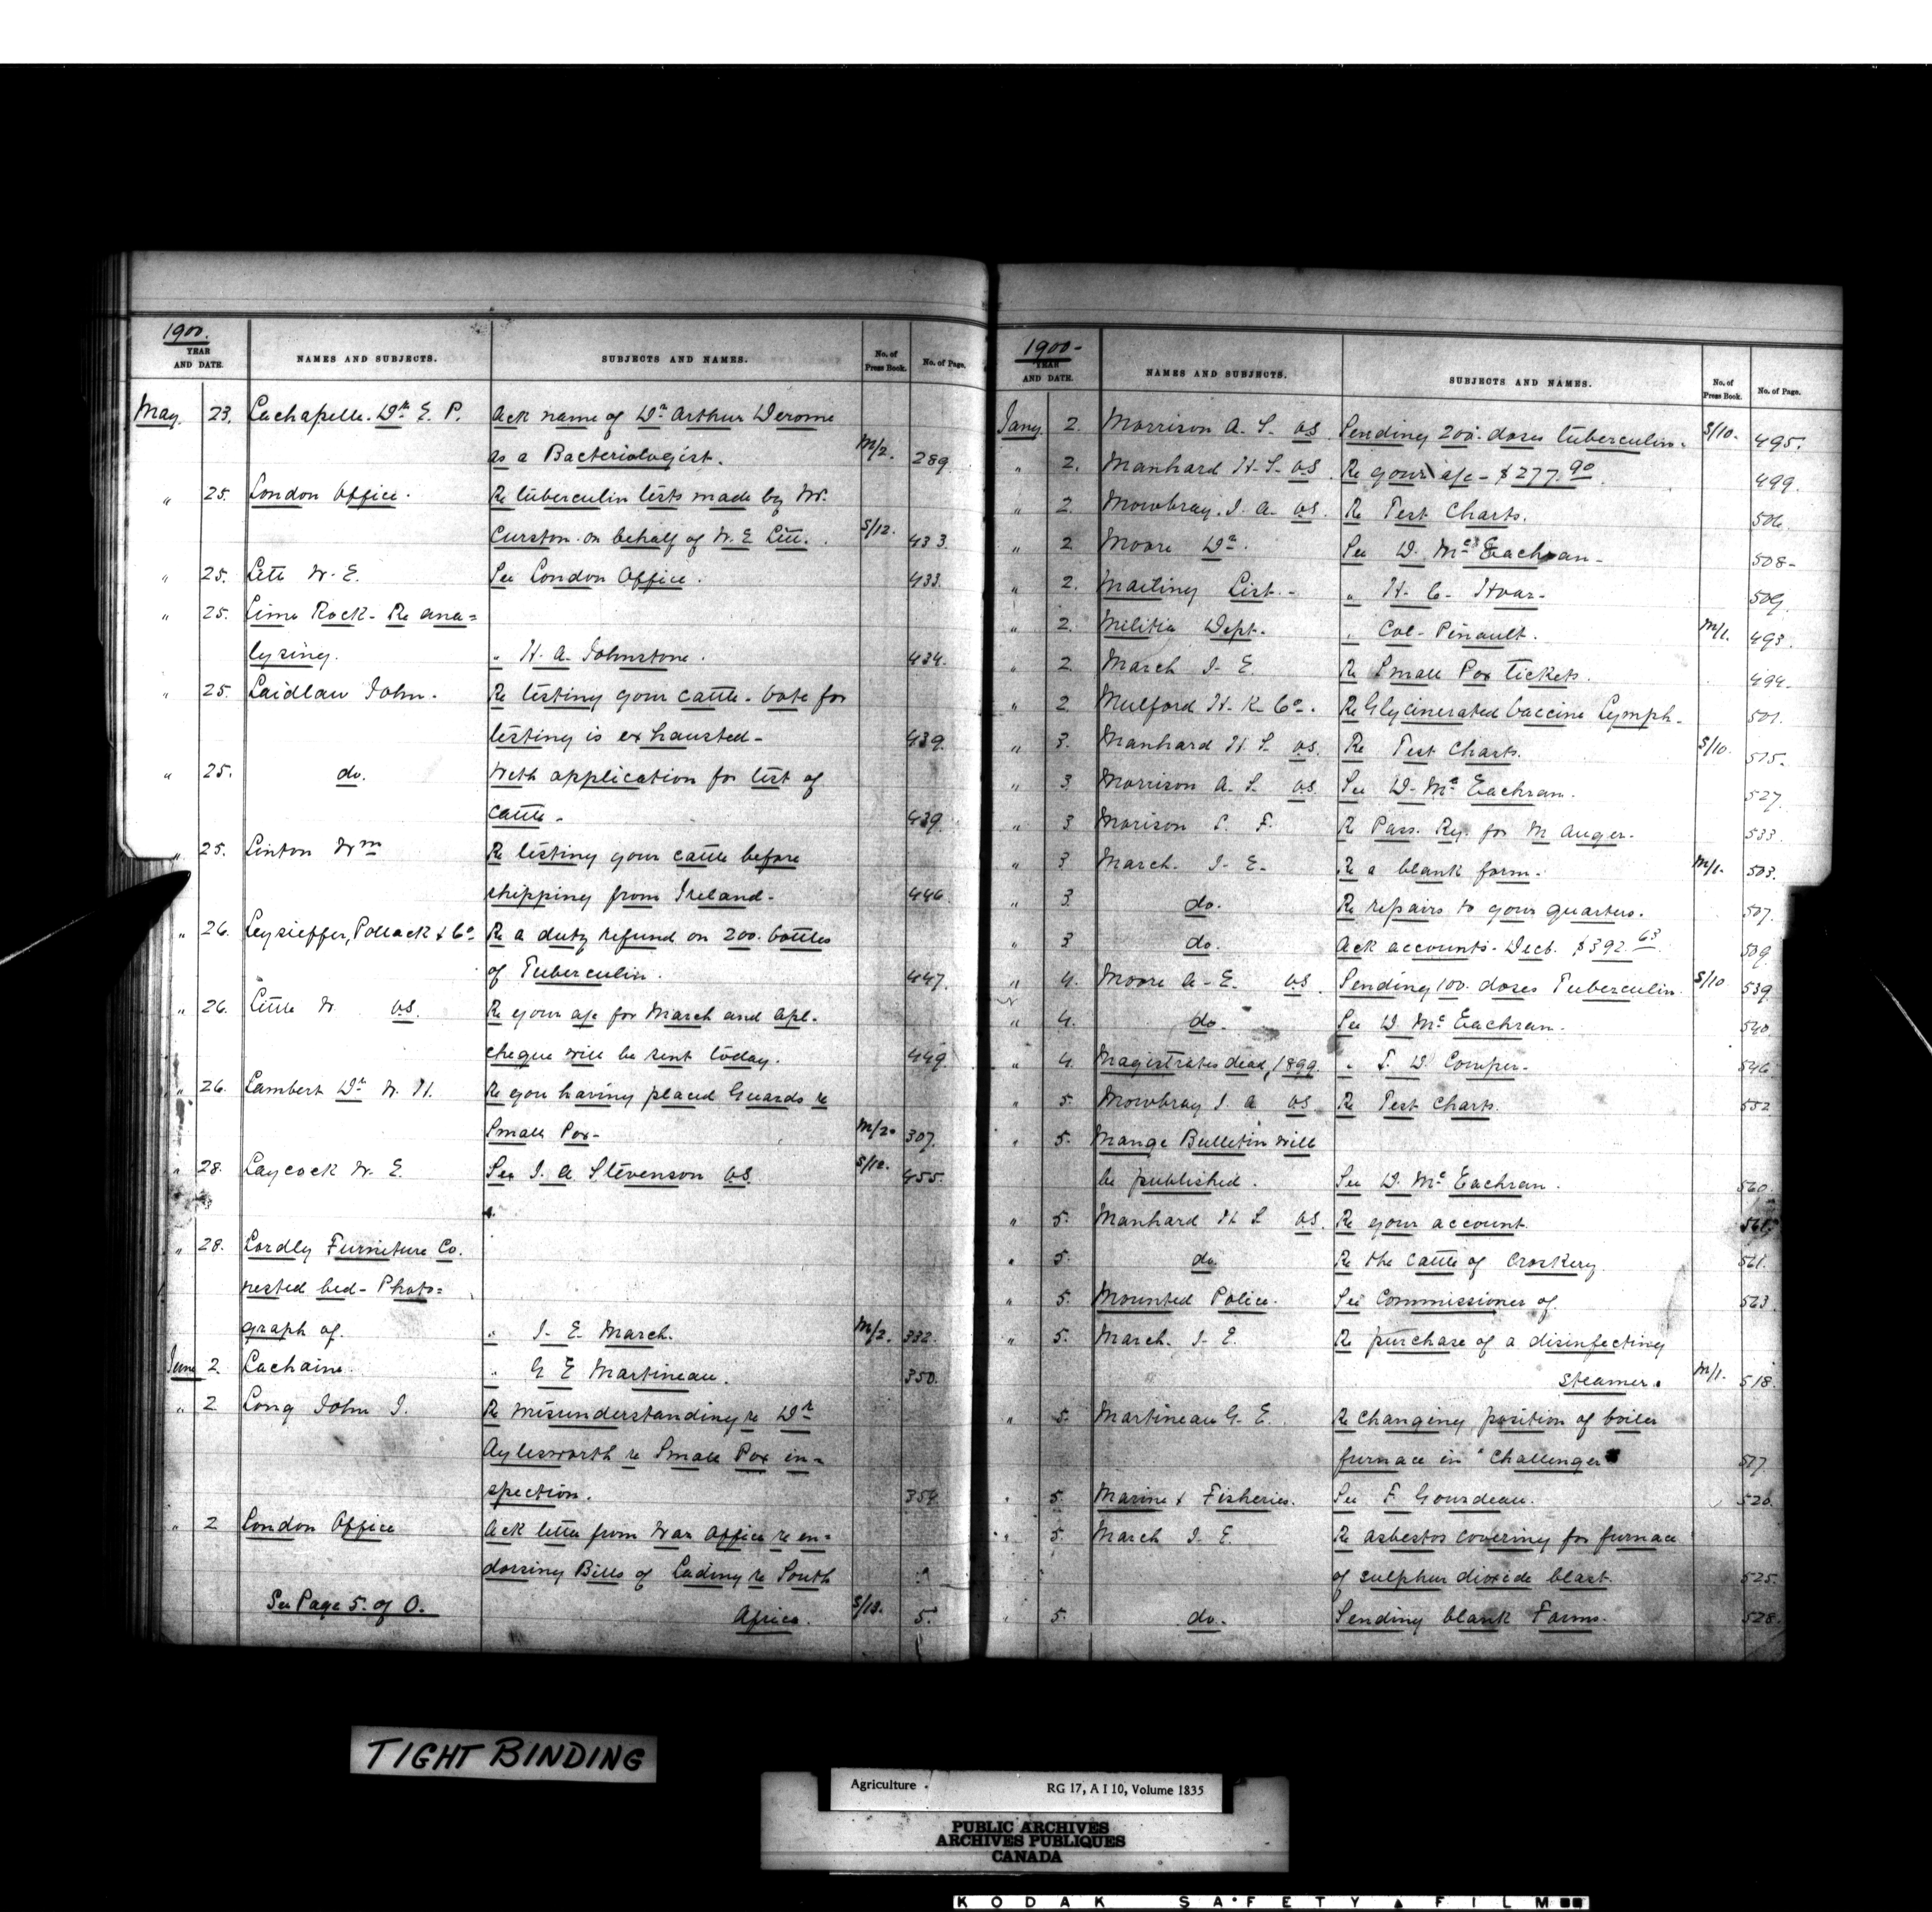 1900.
YEAR
AND DATE.
NAMES AND SUBJECTS.
SUBJECTS AND NAMES.
No. of
Press Book.
No. of Page.
May 23. Lachapelle. Dr. E. P. Ack name of Dr Arthur Derome
as a Bacteriologist. M/2. 289.
" 25. London Office. Re tuberculin tests made by W.
Curston on behalf of W. E. Litt. S/12. 433.
" 25. Litt W. E. See London Office. 433.
" 25. Lime Rock - Re ana=
lysing. " H. A. Johnstone. 434.
" 25. Laidlaw John. Re testing your cattle - Vote for
testing is exhausted - 439.
" 25. do. With application for test of
cattle - 439.
" 25. Linton Wm Re testing your cattle before
shipping from Ireland - 446
" 26. Leysieffer, Pollack & Co. Re a duty refund on 200. bottles
of Tuberculin. 447.
" 26. Little W. VS. Re your a/c for March and Apl.
cheque will be sent today. 449.
" 26. Lambert Dr W. H. Re you having placed Guards re
Small Pox - M/2. 307.
" 28. Laycock W. E. See J. A. Stevenson VS. S/12. 455.
" 28. Lordly Furniture Co.
nested bed - Photo=
graph of. " J. E. March. M/2. 332.
June 2. Lachaine. " G E Martineau. 350.
" 2 Long John J. Re misunderstanding re Dr
Aylesworth re Small Pox in=
spection. 354.
" 2 London Office Ack letter from War Office re en=
dorsing Bills of Lading re South
See Page 5. of O. Africa. S/13. 5.
1900 -
YEAR
AND DATE.
NAMES AND SUBJECTS.
SUBJECTS AND NAMES.
No. of
Press Book.
No. of Page.
Jany 2. Morrison A. S. VS. Sending 200. doses tuberculin. S/10. 495.
" 2. Manhard H. S. VS. Re your a/c - $277.90 499.
" 2. Mowbray. J. A. VS. Re Test Charts. 506.
" 2 Moore Dr. See D. McEachran - 508 -
" 2. Mailing List. - " H. C. Hoar - 509.
" 2. Militia Dept. " Col - Pinault. M/1. 493.
" 2 March J. E. Re Small Pox tickets. 494.
" 2 Mulford H. K. Co. Re Glycinerated Vaccine Lymph. 501.
" 3. Manhard H. S. VS. Re Test Charts. S/10. 515 -
" 3 Morrison A. S. VS. See D. McEachran. 527.
" 3 Morison S. F. Re Pass. Ry. for M Auger. 533
" 3 March. J. E. Re a blank form. M/1. 503.
" 3. do. Re repairs to your quarters. 507.
" 3 do. Ack accounts - Decb. $392.63 509
" 4. Moore A. E. VS. Sending 100. doses Tuberculin. S/10 539.
" 4. do. See D. McEachran. 540
" 4 Magistrates dead, 1899. " T. D. Comper - 546
" 5. Mowbray J. A VS Re Test Charts. 552
" 5. Mange Bulletin will
be published. See D. McEachran. 560
" 5. Manhard H. S. VS. Re your account. 561.
" 5. do. Re the cattle of Croskery 561.
" 5. Mounted Police. See Commissioner of. 563.
" 5. March. J. E. Re purchase of a disinfecting
steamer. M/1. 518.
" 5. Martineau G. E. Re changing position of boiler
furnace in "Challenger" 517
" 5. Marine & Fisheries. See F Gourdeau. 520.
" 5. March J. E. Re asbestos covering for furnace
of sulphur dioxide blast. 525.
" 5. do. Sending blank Forms. 528.
TIGHT BINDING
Agriculture RG 17, A I 10, Volume 1835
PUBLIC ARCHIVES
ARCHIVES PUBLIQUES
CANADA
KODAK SAFETY FILM